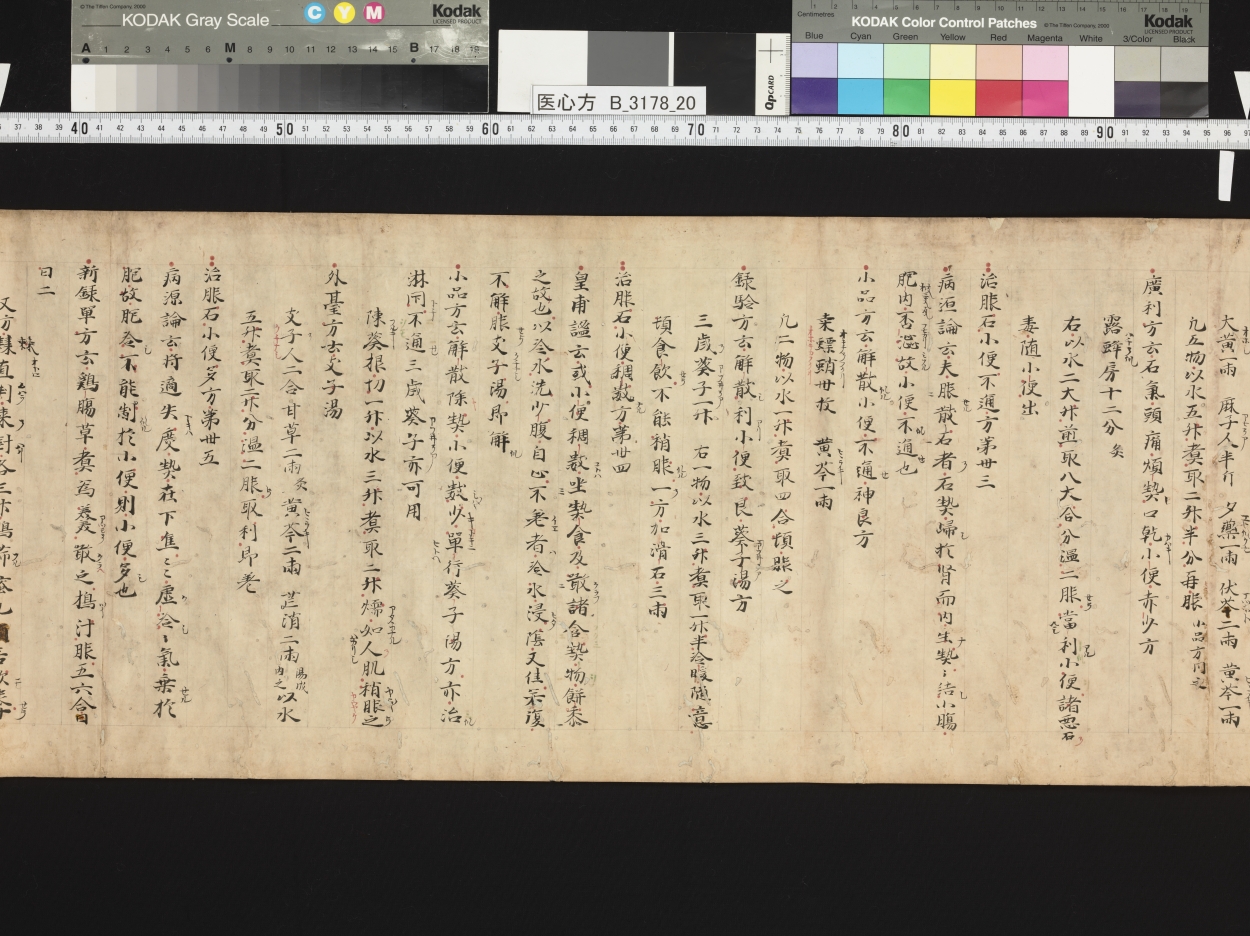 © The Tiffen Company, 2000
KODAK Gray Scale
C Y M
Kodak
LICENSED PRODUCT
A 1 2 3 4 5 6 M 8 9 10 11 12 13 14 15 B 17 18 19
医心方 B_3178_20
QPCARD
Centimetres
KODAK Color Control Patches
© The Tiffen Company, 2000
Kodak
LICENSED PRODUCT
Blue Cyan Green Yellow Red Magenta White 3/Color Black
大黄一兩 麻子人半升 夕藥一兩 伏苓二兩 黄芩一兩
凢五物以水五升煮取二升半分再服 小品方同之
廣利方云石氣頭痛煩熱口乾小便赤少方
露蜂房十二分 炙
右以水二大升煎取八大合分温二服當利小便諸惡石
毒随小便出
治服石小便不通方第卌三
病源論云夫服散石者石熱歸於腎而内生熱〻結小腸
胞内否澁故小便不通也
小品方云解散小便不通神良方
桒螵蛸卅枚 黄芩一兩
凢二物以水一升煮取四合頓服之
録驗方云解散利小便致良葵子湯方
三歳葵子一升 右一物以水三升煮取一升半冷暖随意
頓食飲不能稍服一方加滑石三兩
治服石小便稠數方第卌四
皇甫謐云或小便稠數坐熱食及散諸含熱物餅黍
之故也以冷水洗少腹自心不差者冷水浸蔭又佳若復
不解服支子湯即解
小品方云解散除熱小便數少單行葵子湯方亦治
淋閇不通三歳葵子亦可用
陳葵根切一升以水三升煮取二升燸如人肌稍服之
外臺方云支子湯
支子人二合 甘草二兩炙 黄芩二兩 芒消二兩湯成内之以水
五升煮取二升分温二服取利即差
治服石小便多方第卌五
病源論云将適失度熱在下焦〻虚冷〻氣乗於
胞故胞冷不能制於小便則小便多也
新録單方云鶏腸草煮為羹散之搗汁服五六合
日二